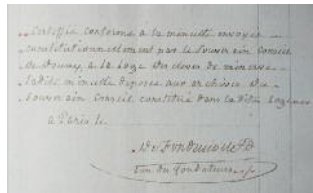 Certifié conforme à la minutte envoyée
constitutionnelement par le Souverain Conseil
de Douay, a la Loge du
ladite minutte deposée aux archives du
Souverain Conseil constitué dans la ditte Loge
a Paris le
un des fondateurs